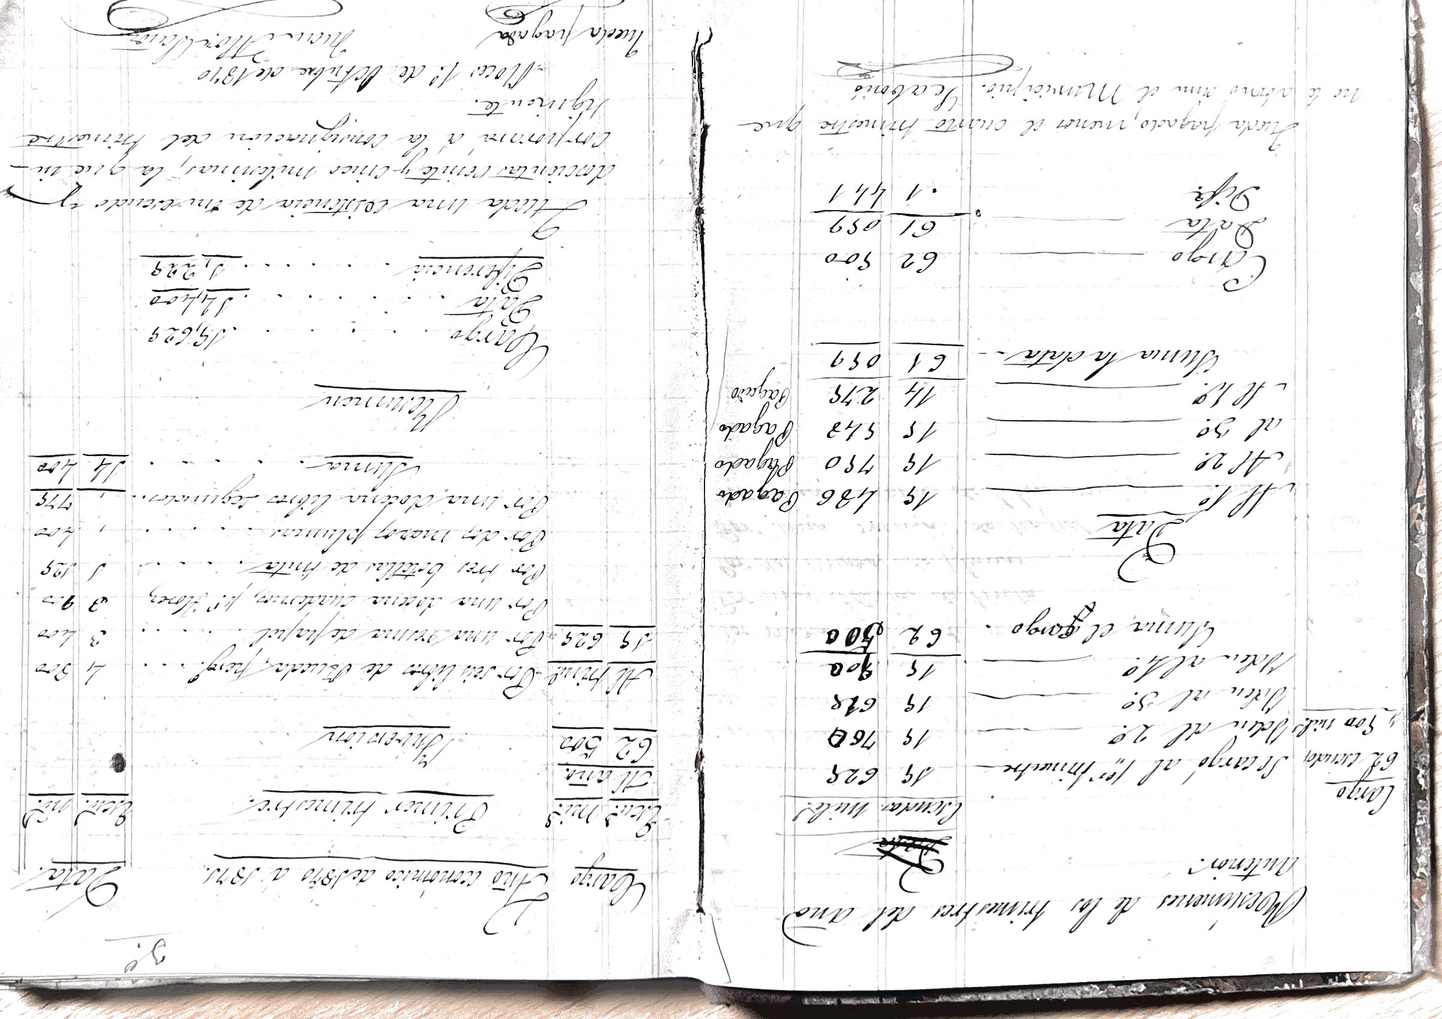 Resúmenes de los trimestres del año
Anterior.
Escudos Miles
Cargo
62 escudos Se cargó al 1er trimestre 15 625
y 500 mils Iden al 2º 15 750
Iden al 3º 15 625
Iden al 4º 15 500
Suma el cargo 62 500
Data
Al 1º 15 486 Pagado
Al 2º 15 750 Pagado
al 3º 15 548 Pagado
Al 4º 14 275 Pagado
Suma la data 61 059
Cargo 62 500
Data 61 059
Difª 1 441
Queda pagado, menos el cuarto trimestre que
no lo abonó aun el Municipio.
3º
Cargo Año económico de 1870 a 1871. Data.
Escs mils Primer trimestre. Escs mils
Al año
62 500 Inversion
Al trime Por seis libros de 4 800
15 625 Por una resma de papel 3 400
Por una docena cuadernos, pª 3 900
Por tres botellas de tinta 1 125
Por dos mazos plumas , 400
Por una docena libros segundos , 775
Suma 14 400
Resumen
Cargo 15,625
Data 14,400
Diferencia 1,225
Queda una existencia de un escudo y
doscientas veinte y cinco milesimas, la que in-
corporará á la consignacion del trimestre
siguiente.
1º de Octubre de 1870
Queda pagada